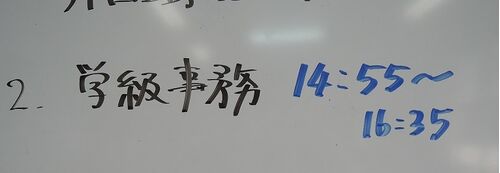 2. 学級事務 14:55~
16:35